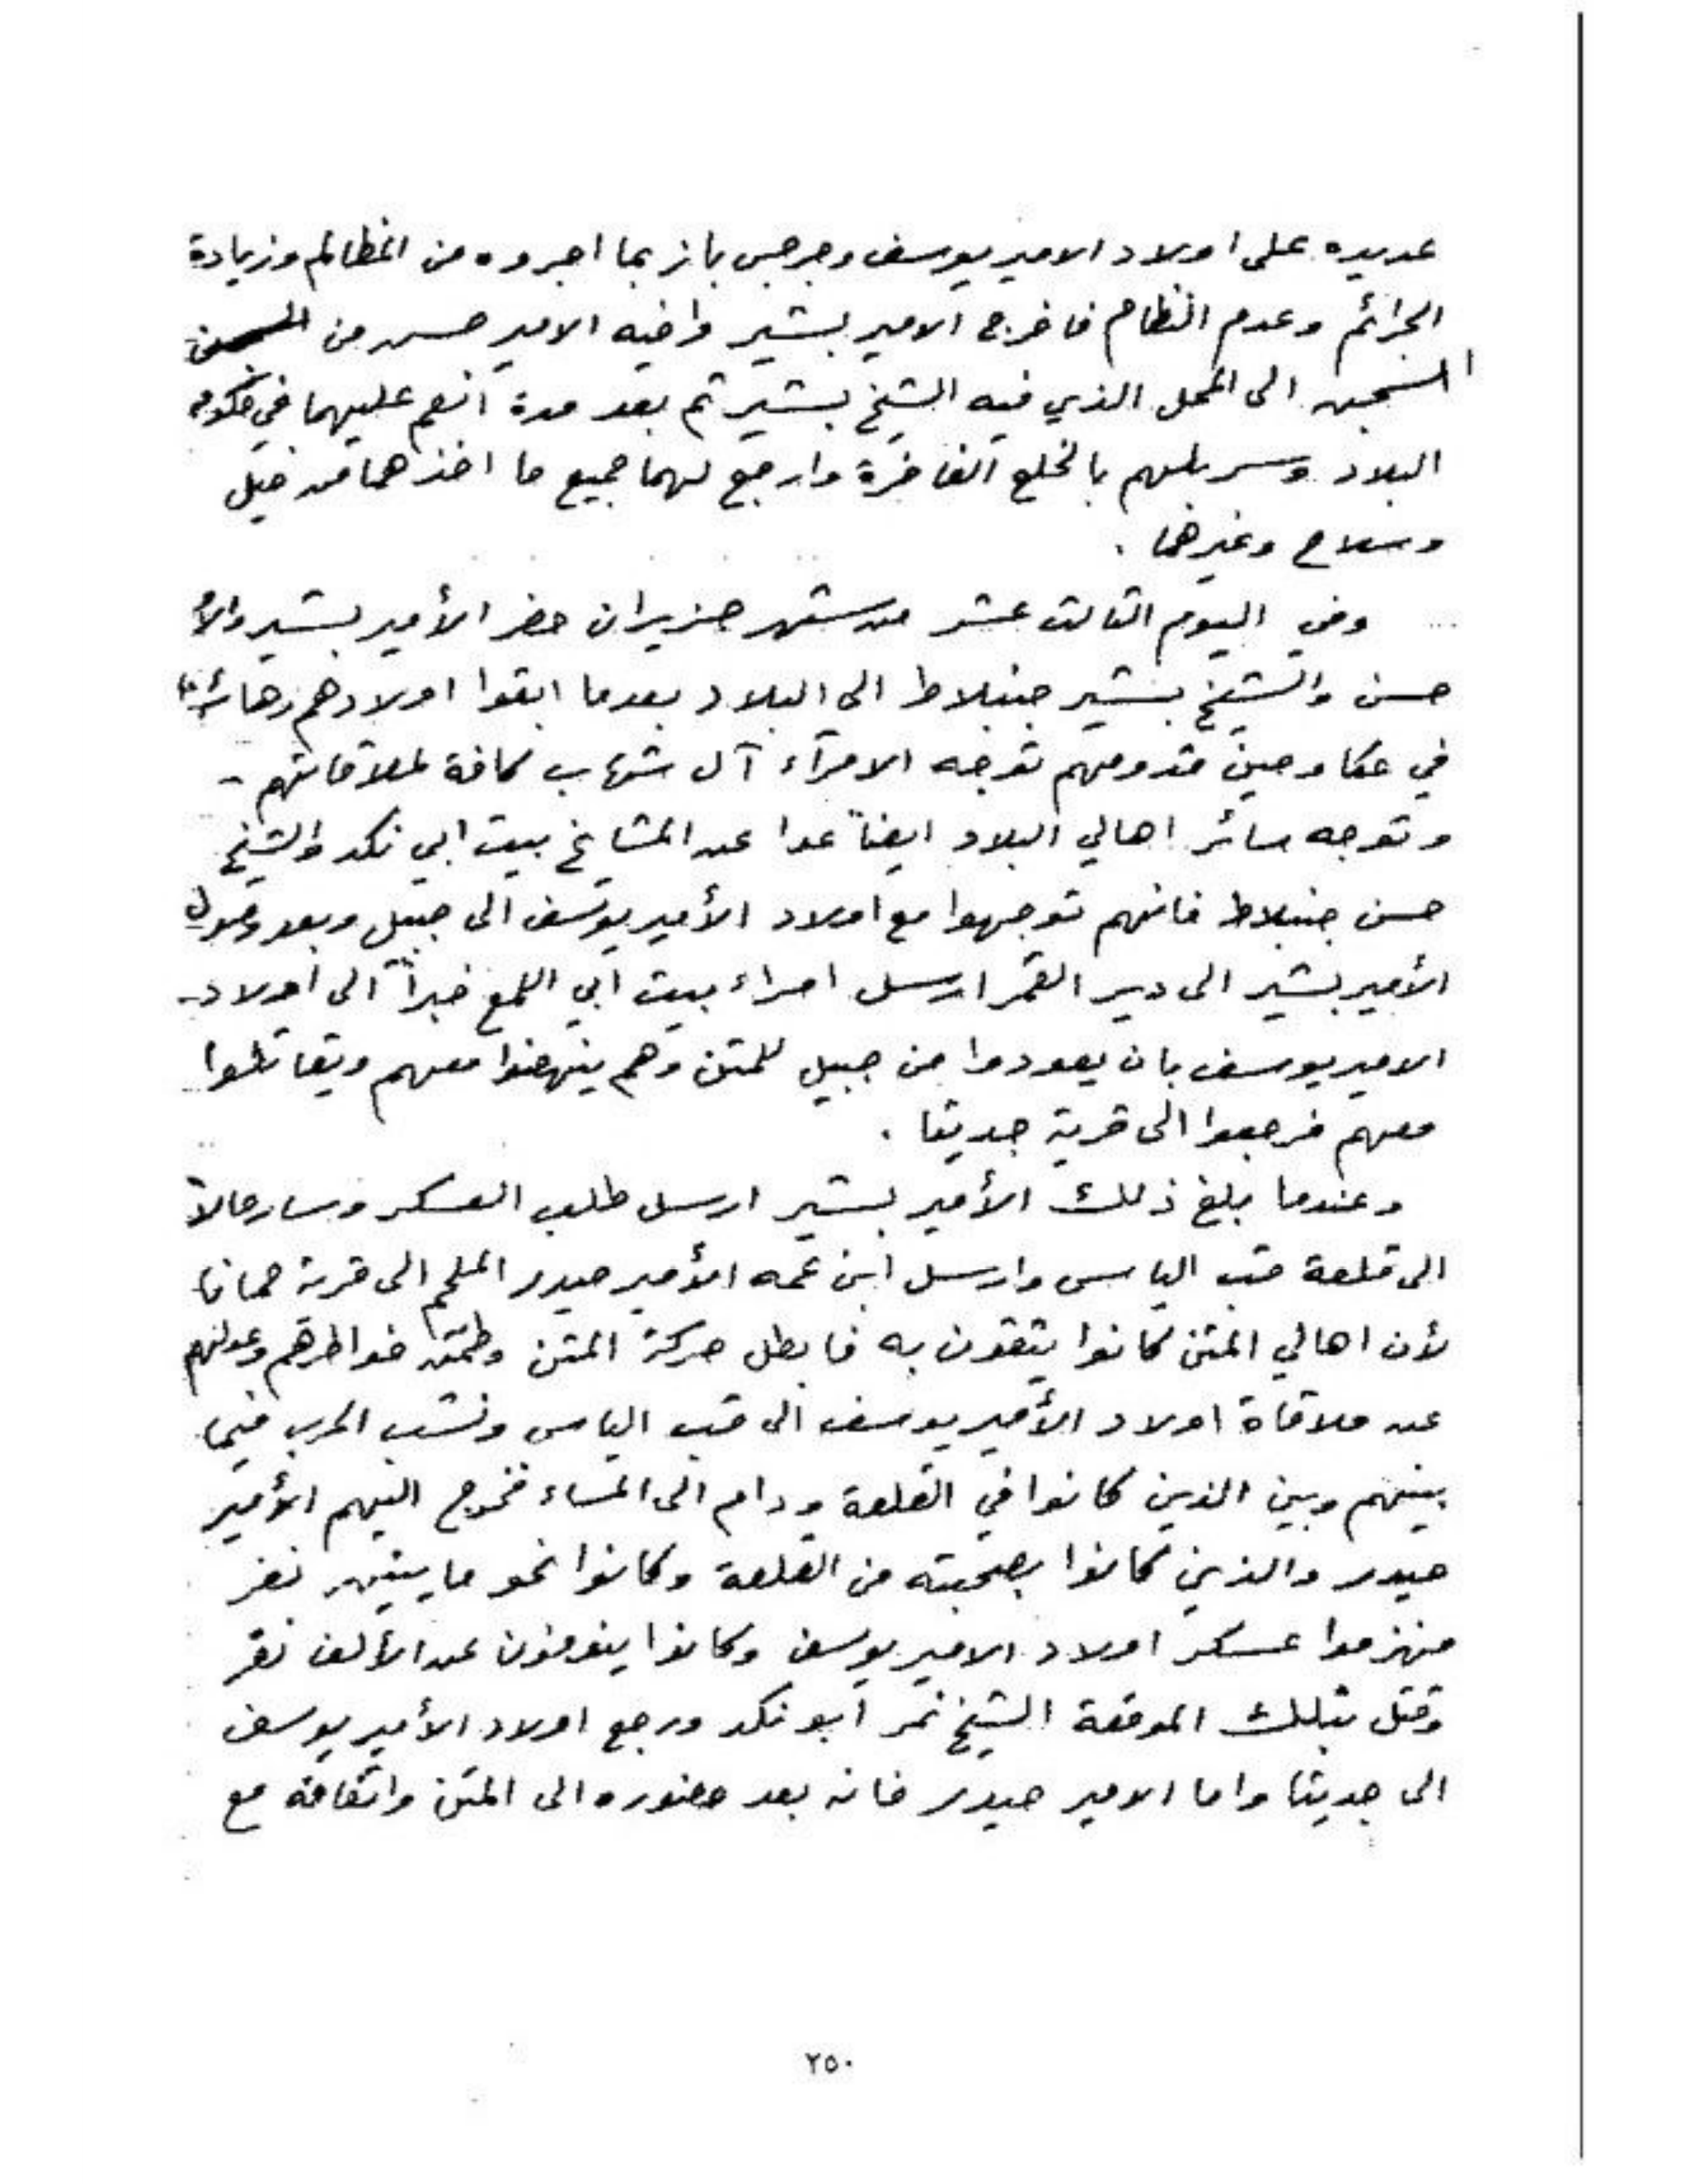 عديده على اولاد الامير يوسف وجرجس باز بما اجروه من المظالم وزيادة
الجرائم وعدم النظام فاخرج الامير بشير واخيه الامير حسن من
السجن الى المحل الذي فيه الشيخ بشير ثم بعد مدة انعم عليهما في حكومة
البلاد وسربلهم بالخلع الفاخرة وارجع لهما جميع ما اخذهما من خيل
وسلاح وغيرهما .
وفي اليوم الثالث عشر من شهر حزيران حضر الأمير بشير والأمير
حسن والشيخ بشير جنبلاط الى البلاد بعدما ابقوا اولادهم رهائن
في عكا وحين قدومهم توجه الامرآء آل شهاب كافة لملاقاتهم -
وتوجه سائر اهالي البلاد ايضاً عدا عن المشايخ بيت ابي نكد والشيخ
حسن جنبلاط فانهم توجهوا مع اولاد الأمير يوسف الى جبيل وبعد وصول
الأمير بشير الى دير القمر ارسل امراء بيت ابي اللمع خبراً الى اولاد -
الامير يوسف بان يعودوا من جبيل للمتن وهم ينهضوا معهم ويقاتلوا
معهم فرجعوا الى قرية جديتا .
وعندما بلغ ذلك الأمير بشير ارسل طلب العسكر وسار حالاً
الى قلعة قب الياس وارسل ابن عمه الأمير حيدر الملحم الى قرية حمانا
لأن اهالي المتن كانوا يثقون به فابطل حركة المتن وطمّن خواطرهم وعدلهم
عن ملاقاة اولاد الأمير يوسف الى قب الياس ونشب الحرب فيما
بينهم وبين الذين كانوا في القلعة ودام الى المساء فخرج اليهم الأمير
حيدر والذين كانوا بصحبته من القلعة وكانوا نحو مايتين نفر
فهزموا عسكر اولاد الامير يوسف وكانوا ينوفون عن الألف نفر
وقتل بتلك الموقعة الشيخ نمر أبو نكد ورجع اولاد الأمير يوسف
الى جديتا واما الامير حيدر فانه بعد حضوره الى المتن واتفاقه مع
٢٥٠